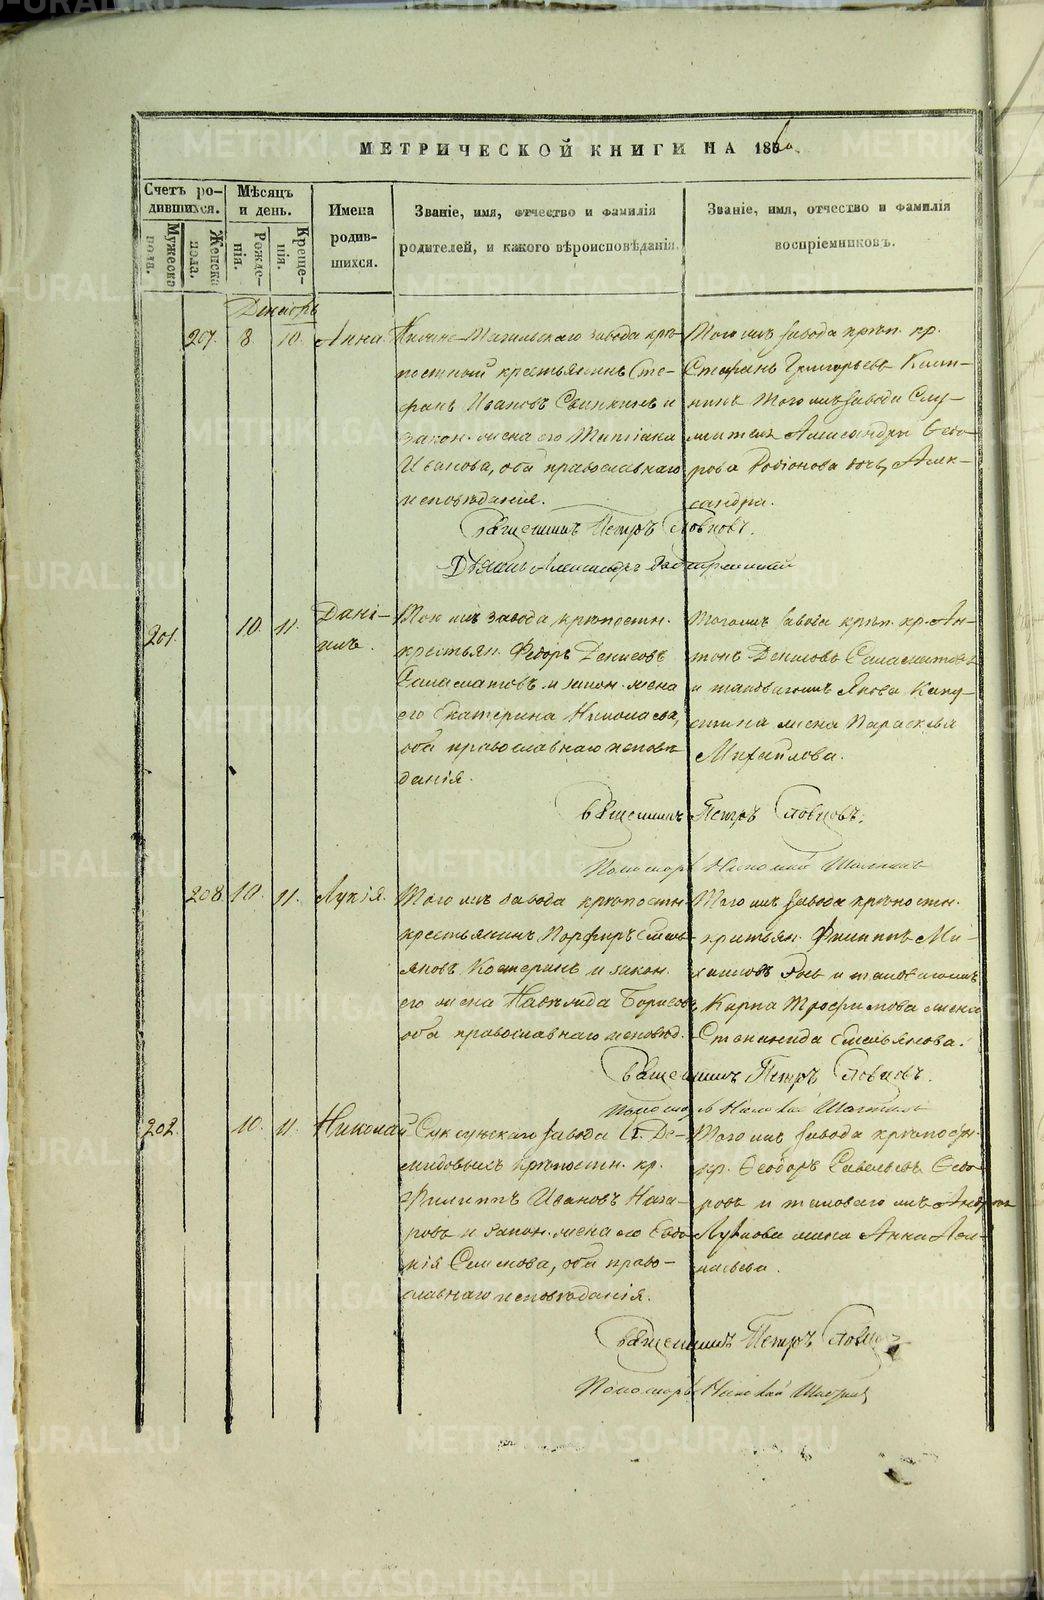 МЕТРИЧЕСКОЙ КНИГИ НА 186
Счетъ ро-
дившихся.
Мужеска
пола.
Женска
пола.
Мѣсяцъ
и день.
Рожде-
нія.
Креще-
нія.
Имена
родив-
шихся.
Званіе, имя, отчество и фамилія
родителей, и какого вѣроисповѣданія.
Званіе, имя, отчество и фамилія
воспріемниковъ.
Декабрь
207. 8 10. Анна
Нижне-Тагильскаго завода крѣ-
постный крестьянинъ Сте-
фанъ Ивановъ и
закон. жена его Татіана
Иванова, оба православнаго
исповѣданія.
Тогожъ завода крѣп. кр.
Стефанъ Григорьевъ
тогожъ завода Слу-
жителя Александра Ѳедо-
рова Родіонова дочь, Алек-
сандра.
Священникъ Петръ Словцовъ.
Діаконъ Александръ
201. 10. 11. Дані-
илъ.
Того жъ завода крѣпостн.
крестьян. Ѳедоръ Денисовъ
Саламатовъ и закон. жена
его Екатерина Николаева,
оба православнаго исповѣ-
данія.
Тогожъ завода крѣп. кр. Ан-
тонъ Денисовъ Саламатовъ
и таковагожъ Якова Капу-
стина жена Параскева
Михайлова.
Священникъ Петръ Словцовъ.
Пономарь Николай
208. 10. 11. Лукія.
Того жъ завода крѣпостн.
крестьянинъ Порфиръ Емель-
яновъ Костеринъ и закон.
его жена Надежда Борисова
оба православнаго исповѣд.
Того жъ завода крѣпостн.
крестьян. Филиппъ Ми-
и таковагожъ
Карпа Трофимова жена
Степанида Емельянова.
Священникъ Петръ Словцовъ.
Пономарь Николай
202. 10. 11. Николай
Суксунскаго завода Г. Де-
мидовыхъ крѣпостн. кр.
Филиппъ Ивановъ Наза-
ровъ и закон. жена его Евдо-
кія Семенова, оба право-
славнаго исповѣданія.
Того жъ завода крѣпостн.
кр. Ѳеодоръ Савельевъ Ѳедо-
ровъ и таковаго жъ Андрея
жена Анна
Священникъ Петръ Словцовъ
Пономарь Николай
METRIKI.GASO-URAL.RU